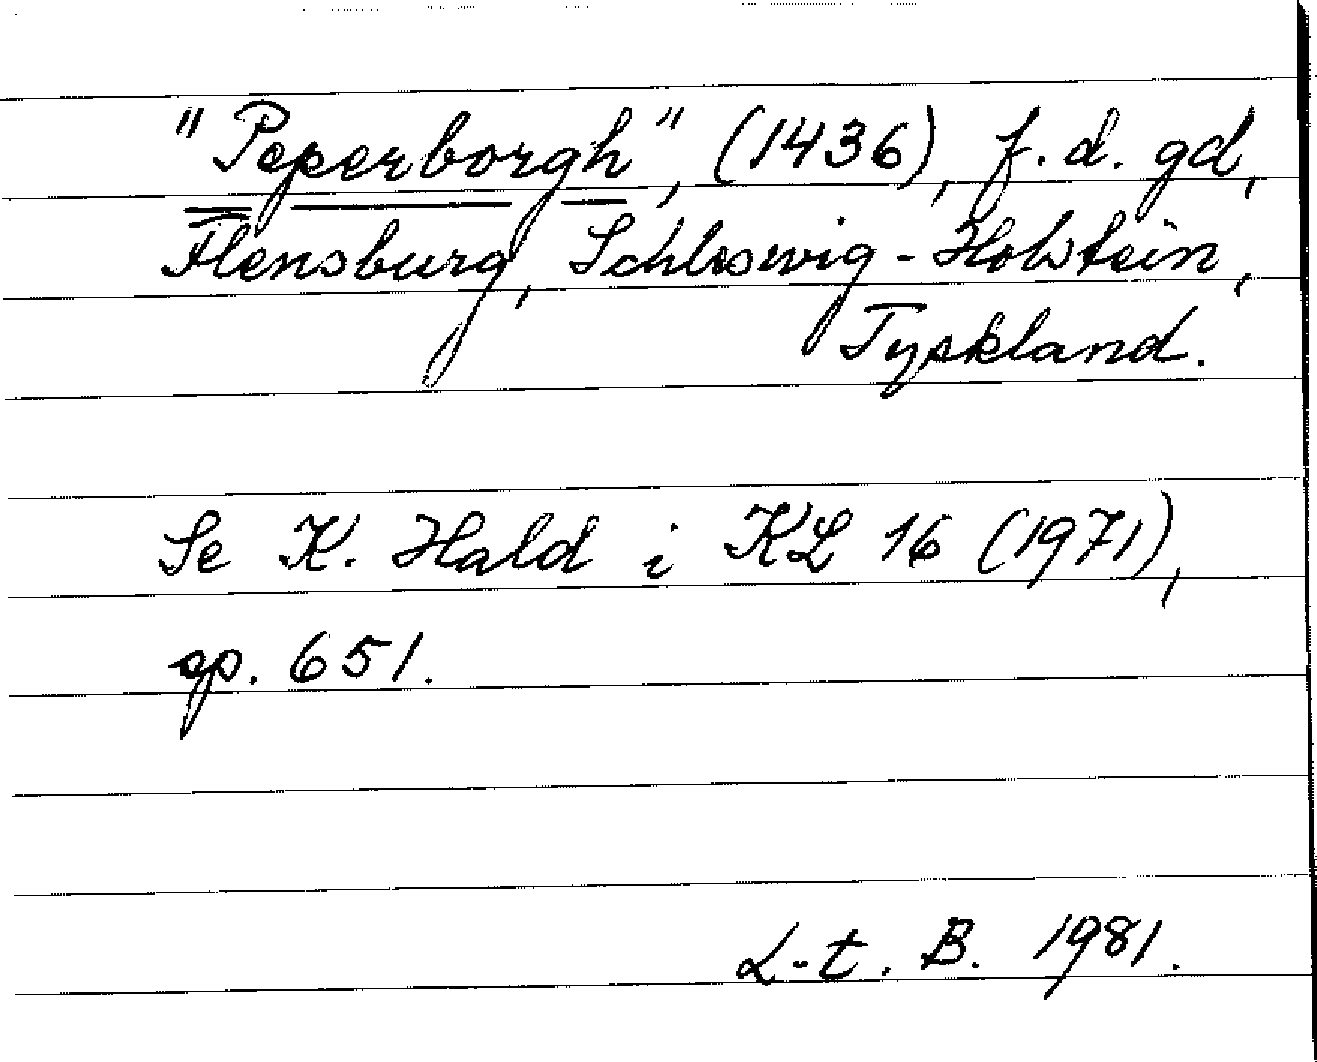 "Peperborgh", (1436), f.d. gd,
Flensburg, Schleswig-Holstein,
Tyskland.
Se K. Hald i KL 16 (1971),
sp. 651.
L-t. B. 1981.